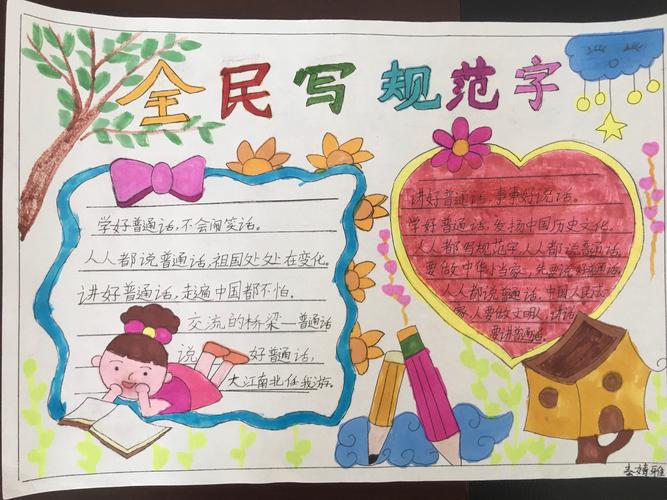 全民写规范字
学好普通话,不会闹笑话。
人人都说普通话,祖国处处在变化。
讲好普通话,走遍中国都不怕。
交流的桥梁—普通话
说好普通话,
大江南北任我游。
讲好普通话,事事好说话。
学好普通话,发扬中国历史文化。
人人都写规范字人人都说普通话,
要做中华小当家,先要说好普通话。
人人都说普通话,中国人民成一
家,人要做文明人,讲话
要讲普通话。
李婧雅